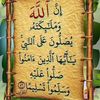 إِنَّ اللَّهَ
وَمَلَٰٓئِكَتَهُ
يُصَلُّونَ عَلَى النَّبِيِّ
يَٰٓأَيُّهَا الَّذِينَ ءَامَنُوا
صَلُّوا عَلَيْهِ
وَسَلِّمُوا تَسْلِيمًا